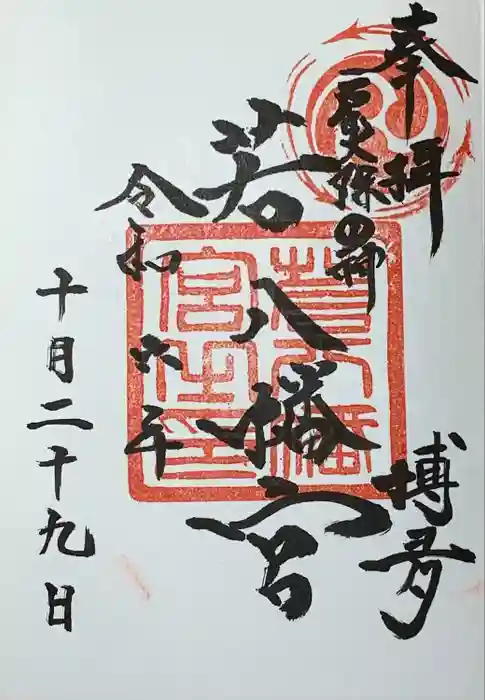 奉拝
厄災除の神
博多
若八幡宮
令和六年
十月二十九日
若八幡
宮之印